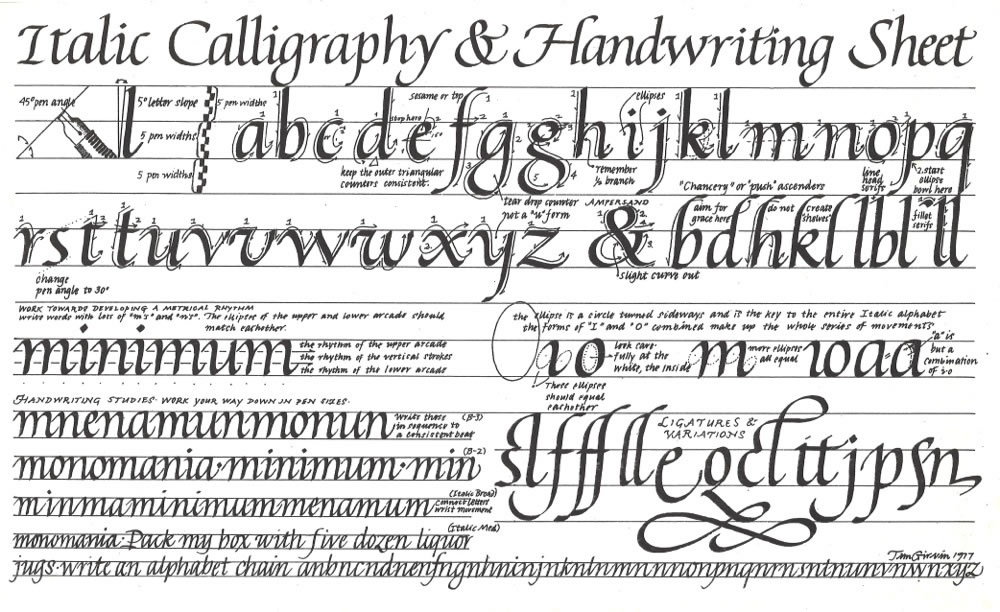 Italic Calligraphy & Handwriting Sheet
45° pen angle
5° letter slope
5 pen widths
5 pen widths
5 pen widths
l a b c d e f g g h i j k l m n o p q
sesame or top
stop here
ellipses
keep the outer triangular
counters consistent.
remember
½ branch
"Chancery" or "push" ascenders
line
head
serifs
2. start
ellipse
bowl here
tear drop counter
not a "u" form
AMPERSAND
r s t t u v v w w x y z & b d h k l l b l l l
aim for
grace here
do not
create
shelves
fillet
serifs
slight curve out
change
pen angle to 30°
WORK TOWARDS DEVELOPING A METRICAL RHYTHM
write words with lots of "m's" and "n's". The ellipses of the upper and lower arcade should
match eachother.
the ellipse is a circle turned sideways and is the key to the entire Italic alphabet
the forms of "I" and "O" combined make up the whole series of movements
minimum
the rhythm of the upper arcade
the rhythm of the vertical strokes
the rhythm of the lower arcade
io
look care-
fully at the
white, the inside
m
more ellipses
all equal
ioaa
"a" is
but a
combination
of i·o
These ellipses
should equal
eachother
HANDWRITING STUDIES· WORK YOUR WAY DOWN IN PEN SIZES·
mnenamunmonun
write these
in sequence to
a consistent beat
(B-3)
LIGATURES &
VARIATIONS
monomania·minimum·min
(B-2)
minmaminimummenamum
(Italic Broad)
connect letters
wrist movement
monomania·Pack my box with five dozen liquor
(Italic Med)
jugs·write an alphabet chain anbncndnenfngnhninjnknlnmnnnonpnqnrnsntnunvnwnxyz
Tim Girvin 1977